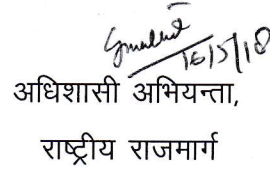 16/5/18
अधिशासी अभियन्ता,
राष्ट्रीय राजमार्ग